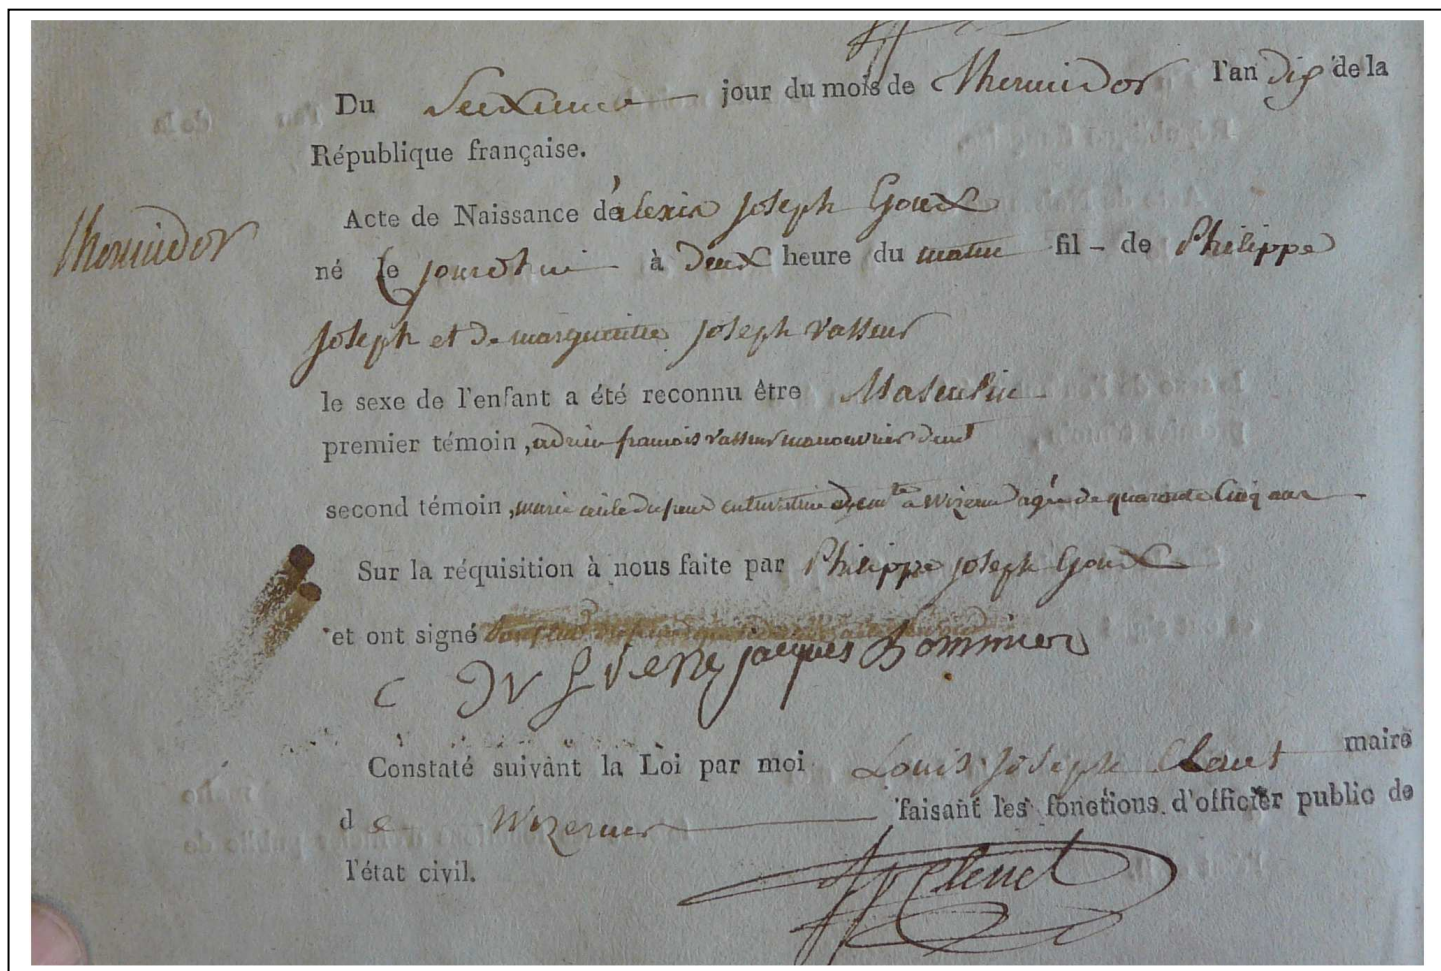 Du jour du mois de Thermidor l'an dix de la
République française.
Thermidor
Acte de Naissance de alexis joseph Goux
né le jourdhui à deux heure du matin fil - de Philippe
joseph et de margueritte joseph vasseur
le sexe de l'enfant a été reconnu être Masculin
premier témoin, adrien francois vasseur manouvrier
second témoin, marie cecile a Wizerne agée de quarante cinq ans
Sur la réquisition à nous faite par Philippe joseph Goux
et ont signé
jacques Bommier
Constaté suivant la Loi par moi Louis joseph Clenet maire
d e Wizernes faisant les fonctions d'officier public de
l'état civil.
Clenet